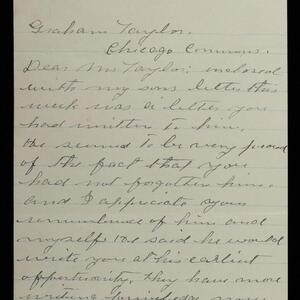 Graham Taylor.
Chicago Commons.
Dear Mr Taylor; inclosed
with my sons letter this
week was a letter you
had written to him,
he seemed to be very proud
of the fact that you
had not forgotten him.
and I appreciate your
remembrance of him and
myself. he said he would
write you at his earliest
opportunity, they have more
writing